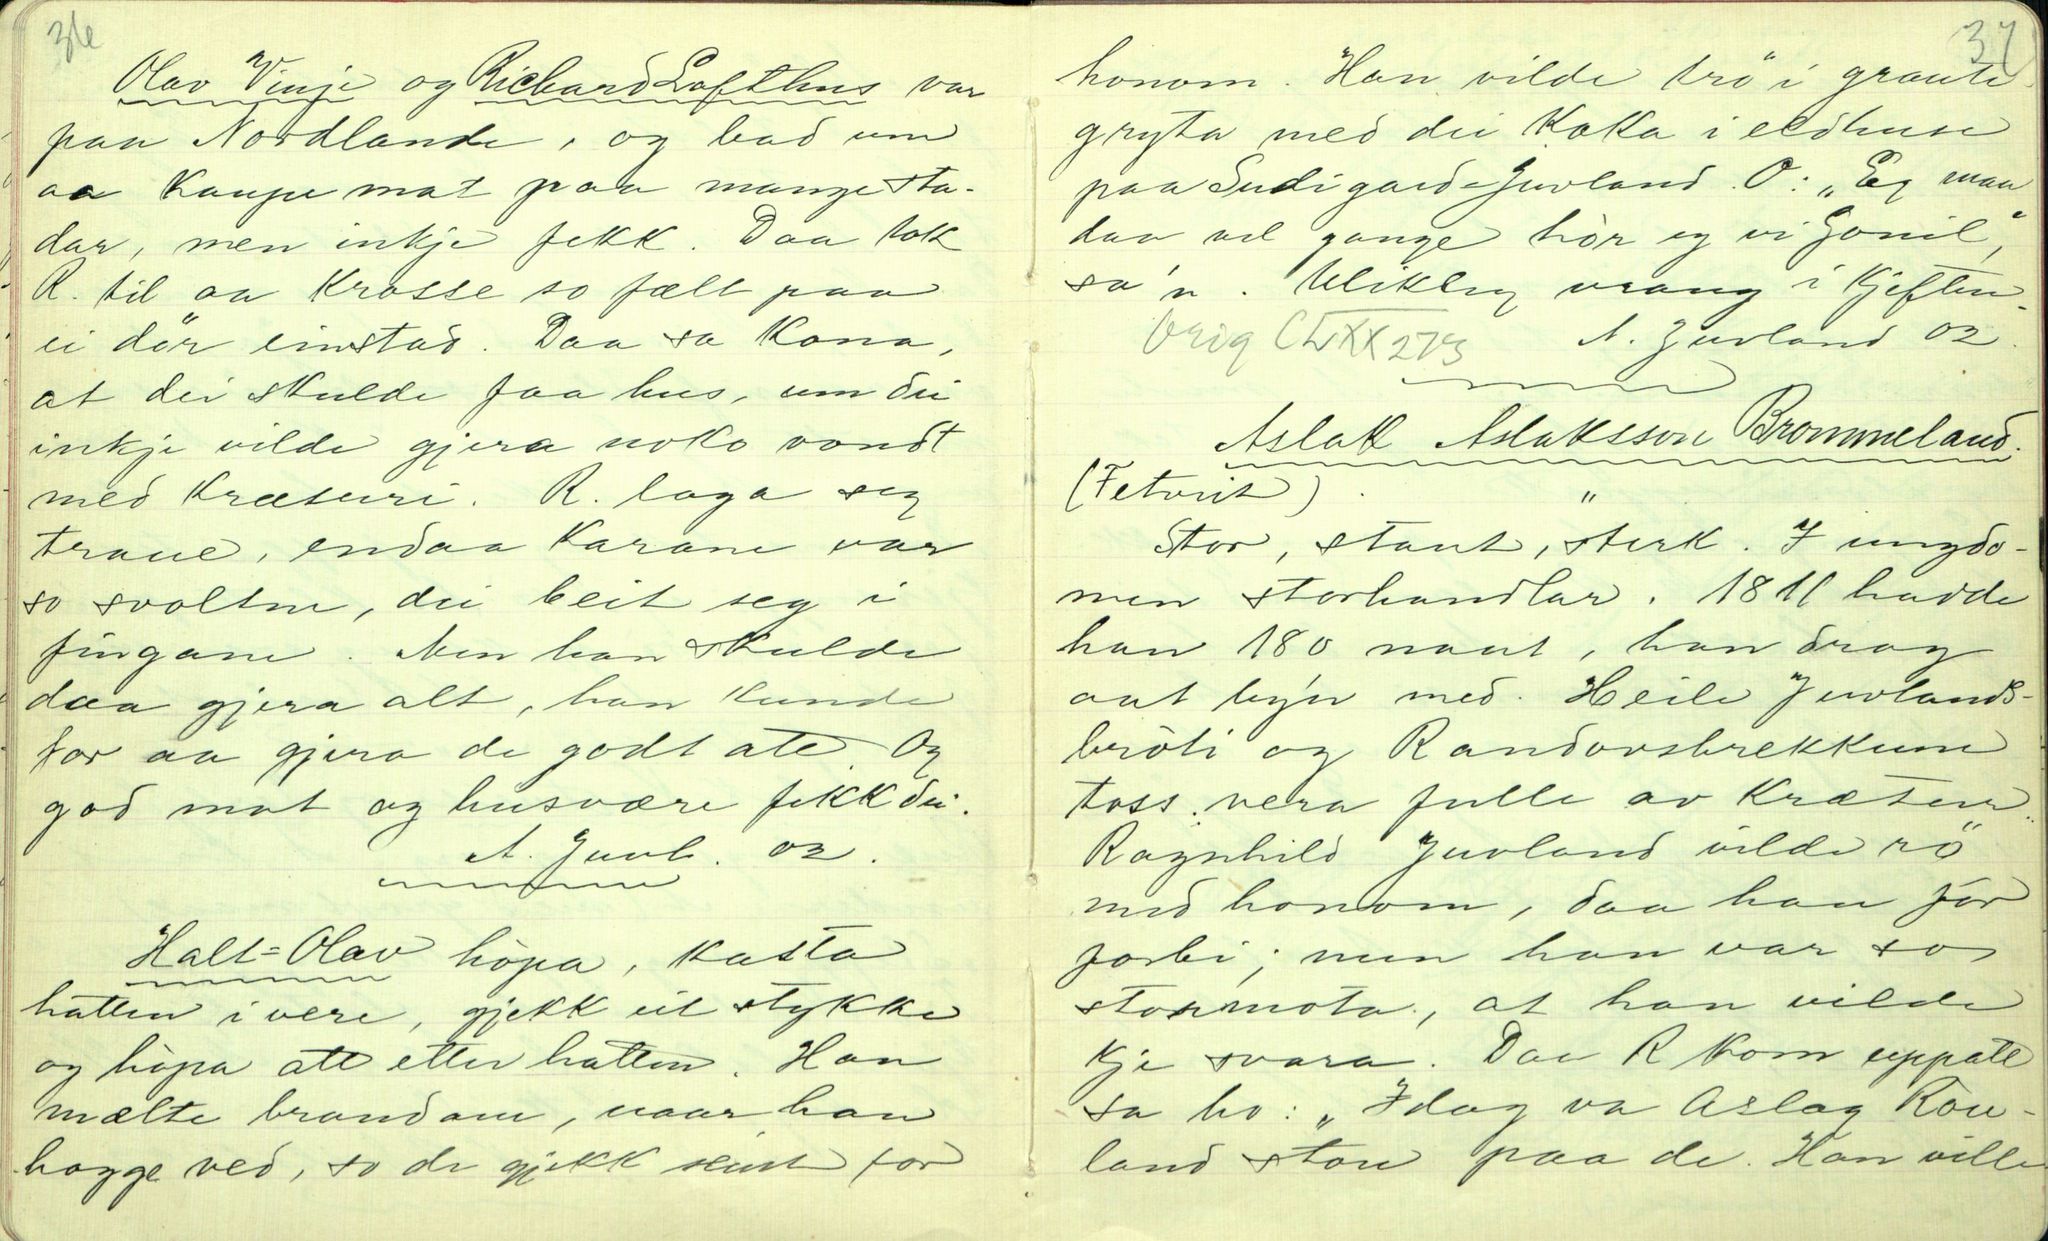 36
Olav Vinje og Richard Lofthus var
paa Nordlande, og bad um
aa kaupe mat paa mange sta-
dar, men inkje fekk. Daa tok
R. til aa krosse so fælt paa
ei dör einstad. Daa sa kona,
at dei skulde faa hus, um dei
inkje vilde gjera noko vondt
med kræturi. R. laga seg
traue, endaa karane var
so svoltne, dei beit seg i
fingane. Men han skulde
daa gjera alt, han kunde
for aa gjera de godt att. Og
god mat og husvære fekk dei.
A. Juvl. 02.
Halt-Olav höpa, kasta
hatten i vere, gjekk eit stykke
og höpa att etter hatten. Han
mælte brandane, naar han
hogge ved, so de gjekk seint for
37
honom. Han vilde trö i graute-
gryta med dei koka i eldhuse
paa Sudigard-Juvland. O: "Eg maa
daa vel gange hör eg vi Gonil",
sa'n. Ulikleg vrang i kjeften.
Orig CLXX 273 A. Juvland 02.
Aslak Aslaksson Brommeland.
(Fetveit)
Stor, staut, sterk. I ungdo-
men storhandlar. 1811 hadde
han 180 naut, han drog
aat by'n med. Heile Juvlands-
bröti og Randovsbrekkune
toss vera fulle av kræter.
Ragnhild Juvland vilde rö
med honom, daa han för
forbi; men han var so
stormota, at han vilde
kje svara. Daa R kom uppatt
sa ho: "Idag va Aslag Rou-
land stor paa de. Han ville